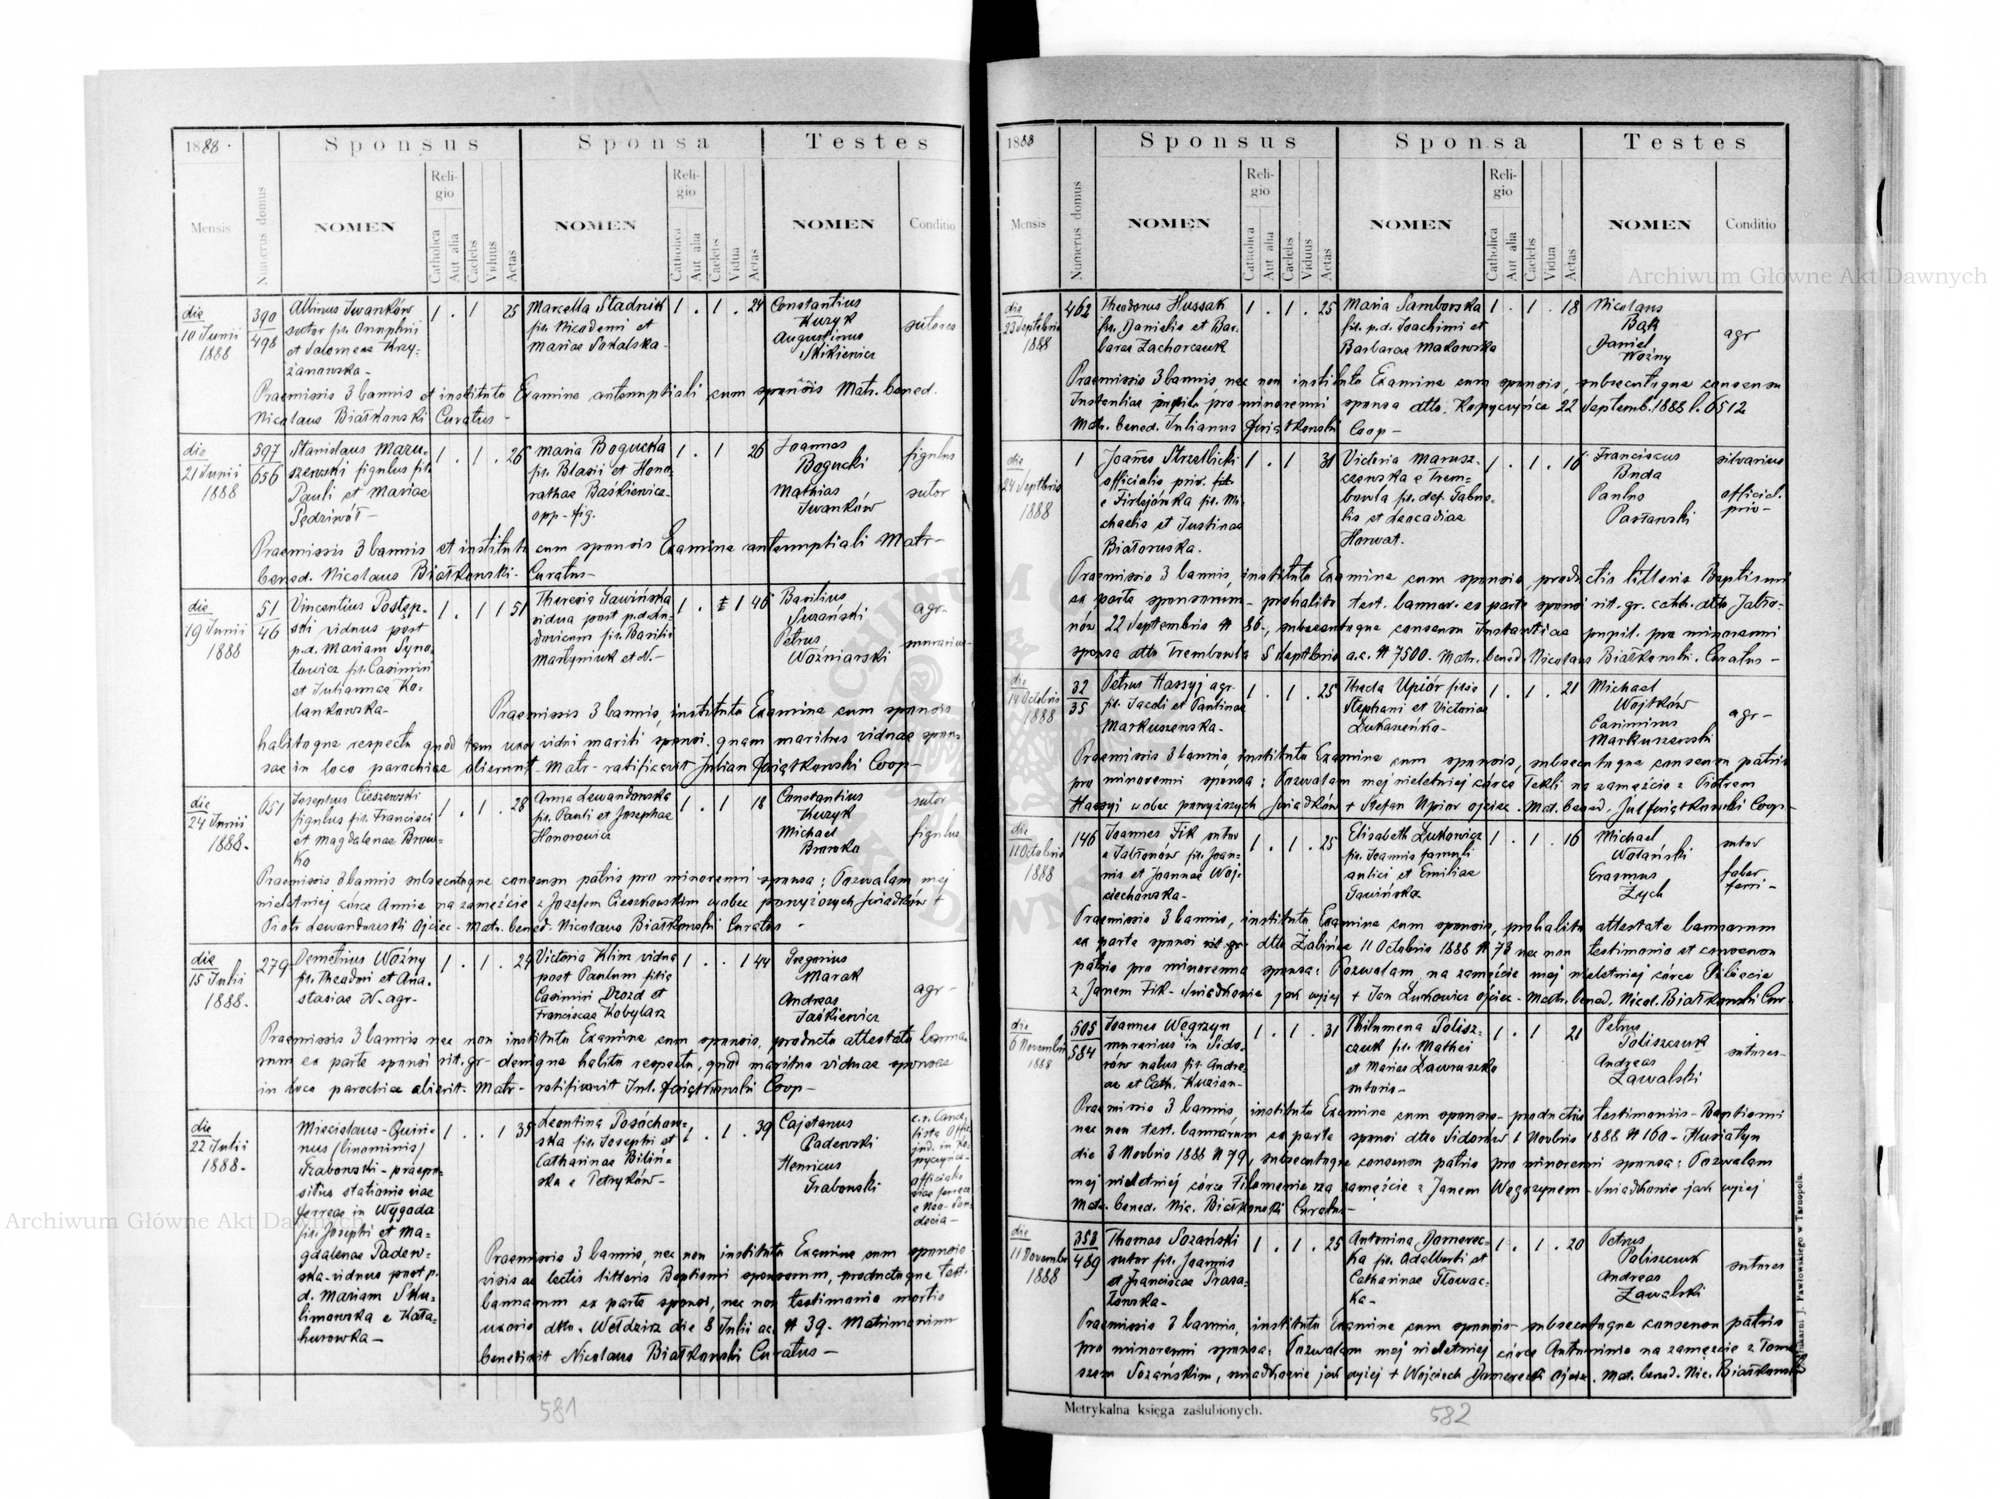 1888.
Sponsus
Sponsa
Testes
Mensis
Numerus domus
NOMEN
Religio
Catholica
Aut alia
Caelebs
Viduus
Aetas
NOMEN
Religio
Catholica
Aut alia
Caelebs
Vidua
Aetas
NOMEN
Conditio
die
10 Junii
1888
390
498
Albinus Iwanków
sutor fil. Onuphrii
et Salomeae Krzy-
żanowska -
1 . 1 25
Marcella Stadnik
fil. Nicodemi et
Mariae Sokalska -
1 . 1 . 24
Constantius
Kuzyk
Augustinus
Skikiewicz
sutores
Praemissis 3 bannis et instituto Examine antenuptiali cum sponsis Matr. bened.
Nicolaus Białkowski Curatus -
die
21 Junii
1888
597
656
Stanislaus Maru-
szewski figulus fil.
Pauli et Mariae
Pędziwół -
1 . 1 . 26
Maria Bogucka
fil. Blasii et Hono-
rathae Baśkiewicz -
opp - fig.
1 . 1 26
Joannes
Bogucki
Mathias
Iwanków
figulus
sutor
Praemissis 3 bannis et instituto cum sponsis Examine antenuptiali Matr -
bened. Nicolaus Białkowski - Curatus -
die
19 Junii
1888
51
46
Vincentius Postęp-
ski viduus post
p.d. Mariam Syno-
towicz fil. Casimiri
et Juliannae Ko-
lankowska -
1 . 1 1 51
Theresia Gawińska
vidua post p.d. Lu-
dovicum fil. Basilii
Martyniuk et N. -
1 . 1 46
Basilius
Petrus
Woźniarski
agr -
murarius
Praemissis 3 bannis, instituto Examine cum sponsis
habitoque respectu quod tam uxor vidui mariti sponsi, quam maritus viduae spon-
sae in loco parochiae obierunt - Matr - ratificavit Julian Kwiątkowski Coop -
die
24 Junii
1888.
651
Josephus Cieszewski
figulus fil. Francisci
et Magdalenae Brow-
ko
1 . 1 . 28
Anna Lewandowska
fil. Pauli et Josephae
Honorowicz
1 . 1 18
Constantius
Kuzyk
Michael
Browko
sutor
figulus
Praemissis 3 bannis subsecutoque consensu patris pro minorenni sponsa: Pozwalam mej
nieletniej córce Annie na zamęście z Józefem Cieszkowskim wobec ponyższych świadków +
Piotr Lewandowski Ojciec - Matr. bened. Nicolaus Białkowski Curatus -
die
15 Julii
1888.
279
Demetrius Woźny
fil. Theodori et Ana-
stasiae N. agr -
1 . 1 . 24
Victoria Klim vidua
post Paulum filia
Casimiri Drozd et
Franciscae Kobylarz
1 . . 1 44
Gregorius
Marak
Andreas
Jaśkiewicz
agr -
Praemissis 3 bannis nec non instituto Examine cum sponsis, producto attestato banna-
rum ex parte sponsi rit. gr - demque habito respectu, quod maritus viduae sponsae
in loco parochiae obierit - Matr - ratificavit Jul. Kwiątkowski Coop -
die
22 Julii
1888.
Miecislaus - Quiri-
nus (binominis)
Grabowski - praepo-
situs stationis viae
ferreae in Wygoda
fil. Josephi et Ma-
gdalenae Padew-
ska - viduus post p.
d. Mariam Sku-
limowska e Kała-
hurowka -
1 . . 1 35
Leontina Posochow-
ska fil. Josephi et
Catharinae Biliń-
ska e Petryków -
1 . 1 . 39
Cajetanus
Padewski
Henricus
Grabowski
c.r. Cance-
lista Offi.
jud. in Ko-
pyczyńce -
officialis
viae ferreae
e Neo-San-
decia -
Praemissis 3 bannis, nec non instituto Examine cum sponsis
visis ac lectis litteris Baptismi sponsorum, productoque test.
bannarum ex parte sponsi, nec non testimonio mortis
uxoris dtto. Wełdzirz die 8 Julii ac. N 39. Matrimonium
benedixit Nicolaus Białkowski Curatus -
581
1888
Sponsus
Sponsa
Testes
Mensis
Numerus domus
NOMEN
Religio
Catholica
Aut alia
Caelebs
Viduus
Aetas
NOMEN
Religio
Catholica
Aut alia
Caelebs
Vidua
Aetas
NOMEN
Conditio
die
23 Septbris
1888
462
Theodorus Hussak
fil. Danielis et Bar-
barae Zachorczuk
1 . 1 . 25
Maria Samborska
fil. p.d. Joachimi et
Barbarae Makowska
1 . 1 . 18
Nicolaus
Bąk
Daniel
Woźny
agr
Praemissis 3 bannis, nec non instituto Examine cum sponsis, subsecutoque consensu
Instantiae pupil. pro minorenni sponsa dtto. Kopyczyńce 22 Septemb. 1888 l. 6512
Matr. bened. Julianus Kwiątkowski Coop -
die
24 Septbris
1888
1
Joannes Strzelbicki
officialis priv.
e Firlejówka fil. Mi-
chaelis et Justinae
Białoruska.
1 . 1 31
Victoria Marusz-
czewska e Trem-
bowla fil. def. Gabrie-
lis et Leocadiae
Horwat.
1 . 1 . 16
Franciscus
Buda
Paulus
Parlawski
silvarius
official.
priv -
Praemissis 3 bannis, instituto Examine cum sponsis, productis litteris Baptismi
ex parte sponsorum - prohabito test. bannor. ex parte sponsi rit. gr. cath. dtto Jabło-
nów 22 Septembris N 86., subsecutoque consensu Instantiae pupil. pro minorenni
sponsa dtto Trembowla 5 Septbris a.c. N 7500. Matr. bened. Nicolaus Białkowski. Curatus -
die
14 Octobris
1888
32
35
Petrus Hassyj agr.
fil. Jacobi et Paulinae
Markuszewska -
1 . 1 . 25
Thecla Upiór filia
Stephani et Victoriae
Łukasieńko -
1 . 1 . 21
Michael
Wojtków
Casimirus
Markuszewski
agr -
Praemissis 3 bannis, instituto Examine cum sponsis, subsecutoque consensu patris
pro minorenni sponsa: Pozwalam mej nieletniej córce Tekli na zamęście z Piotrem
Hassyj wobec ponyższych świadków + Stefan Upior ojciec. Mat. bened. Jul Kwiątkowski Coop -
die
11 Octobris
1888
146
Joannes Fik sutor
e Jabłonów fil. Joan-
nis et Joannae Woj-
ciechowska -
1 . 1 . 25
Elisabeth Łukowicz
fil. Joannis famuli
aulici et Emiliae
Gawińska
1 . 1 . 16
Michael
Wołański
Erasmus
Zych
sutor
faber
ferri -
Praemissis 3 bannis, instituto Examine cum sponsis, prohabito attestato bannarum
ex parte sponsi rit. gr. dtto Żabińce 11 Octobris 1888 N 73 nec non testimonio et consensu
patris pro minorenna sponsa: Pozwalam na zamęście mej nieletniej córce Elżbiecie
z Janem Fik - Świadkowie jak wyżej + Jan Łukowicz ojciec - Matr. bened. Nicol. Białkowski Cur -
die
6 Novembris
1888
505
584
Joannes Węgrzyn
murarius in Sido-
rów natus fil. Andre-
ae et Cath. Kuzian -
1 . 1 . 31
Philumena Polisz-
czuk fil. Mathei
et Mariae Ławruszko
sutoris -
1 . 1 21
Petrus
Poliszczuk
Andreas
Zawalski
sutores -
Praemissis 3 bannis, instituto Examine cum sponsis - productis testimoniis - Baptismi
nec non test. bannarum ex parte sponsi dtto Sidorów 1 Novbris 1888 N 160 - Husiatyn
die 3 Novbris 1888 N 79, subsecutoque consensu patris pro minorenni sponsa: Pozwalam
mej nieletniej córce Filomenie na zamęście z Janem Węgrzynem - Świadkowie jak wyżej
Matr. bened. Nic. Białkowski Curatus -
die
11 Novembr
1888
353
489
Thomas Sozański
sutor fil. Joannis
et Franciscae Prasa-
łowska -
1 . 1 . 25
Antonina Domerec-
ka fil. Adalberti et
Catharinae Głowac-
ka -
1 . 1 . 20
Petrus
Poliszczuk
Andreas
Zawalski
sutores
Praemissis 3 bannis, instituto Examine cum sponsis - subsecutoque consensu patris
pro minorenni sponsa: Pozwalam mej nieletniej córce Antoninie na zamęście z Toma-
szem Sozańskim, świadkowie jak wyżej + Wojciech Domerecki Ojciec. Mat. bened. Nic. Białkowski
Metrykalna księga zaślubionych.
Drukarni J. Pawłowskiego w Tarnopolu.
582
Archiwum Główne Akt Dawnych
Archiwum Główne Akt Dawnych